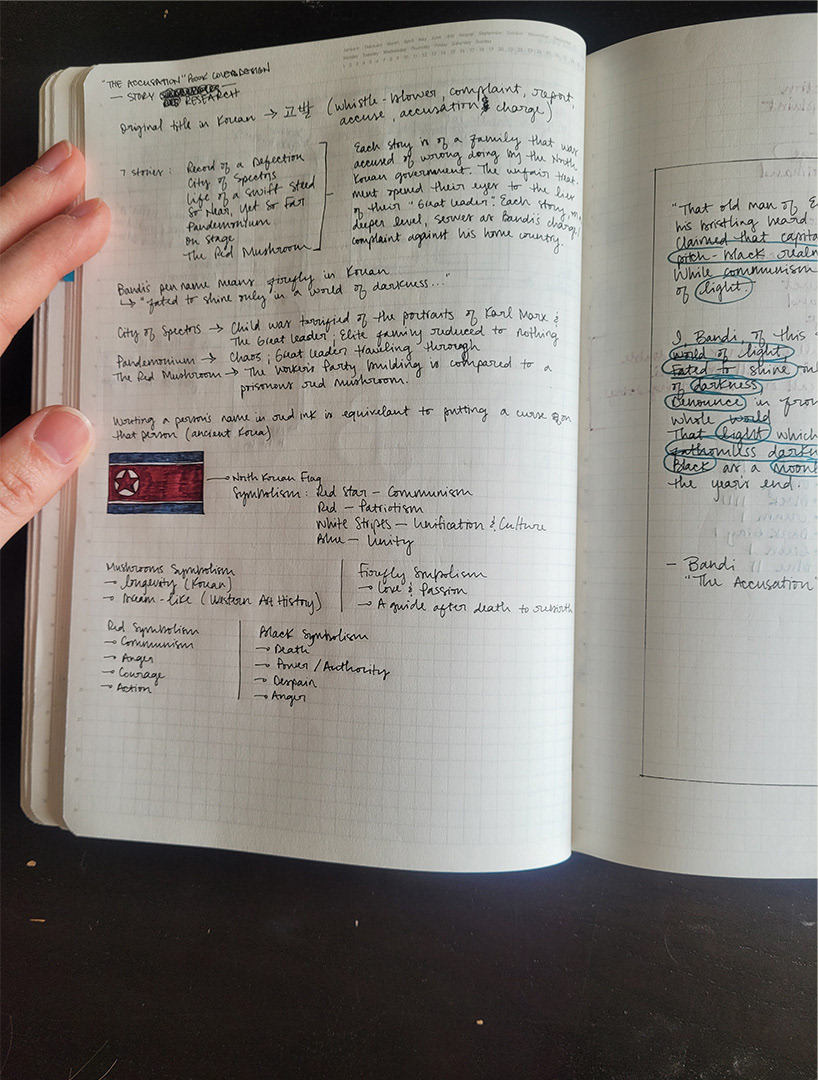 "THE ACCUSATION" BOOK COVER DESIGN
— STORY RESEARCH
Original title in Korean → 고발 (whistle-blower, complaint, report,
accuse, accusation & charge)
7 stories: Record of a Defection
City of Specters
Life of a Swift Steed
So Near, Yet So Far
Pandemonium
On Stage
The Red Mushroom
Each story is of a family that was
accused of wrong doing by the North
Korean government. The unfair treat-
ment opened their eyes to the lies
of their "Great leader". Each story,
deeper level, serves as Bandi's charge/
complaint against his home country.
Bandi's pen name means firefly in Korean
↳ "fated to shine only in a world of darkness..."
City of Specters → Child was terrified of the portraits of Karl Marx &
The Great Leader; Elite family reduced to nothing
Pandemonium → Chaos; Great leader traveling through
The Red Mushroom → The Worker's Party building is compared to a
poisonous red mushroom.
Writing a person's name in red ink is equivelant to putting a curse on
that person (ancient Korea)
→ North Korean Flag
Symbolism: Red Star — Communism
Red — Patriotism
White Stripes — Unification & Culture
Blue — Unity
Mushrooms Symbolism
→ longevity (Korean)
→ Dream-like (Western Art History)
Firefly Symbolism
→ Love & Passion
→ A guide after death to rebirth
Red Symbolism
→ Communism
→ Anger
→ Courage
→ Action
Black Symbolism
→ Death
→ Power/Authority
→ Despair
→ Anger
"That old man of
his bristling beard
Claimed that capita
pitch-black realm
While communism
of light.
I, Bandi, of this
world of light,
Fated to shine
of darkness
Denounce in fron
whole world
That light which
fathomless darkn
Black as a moon
the year's end.
— Bandi
"The Accusation"